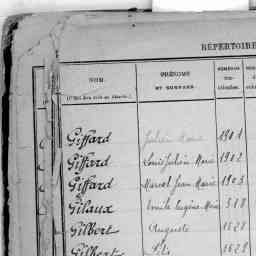 RÉPERTOIRE
NOM. PRÉNOMS ET SURNOMS
Giffard Julien Marie 1901
Giffard Louis Julien Marie 1902
Giffard Marcel Jean Marie 1903
Gilaux Emile Eugène Marie 318
Gilbert Auguste 1628
Gilbert 1629